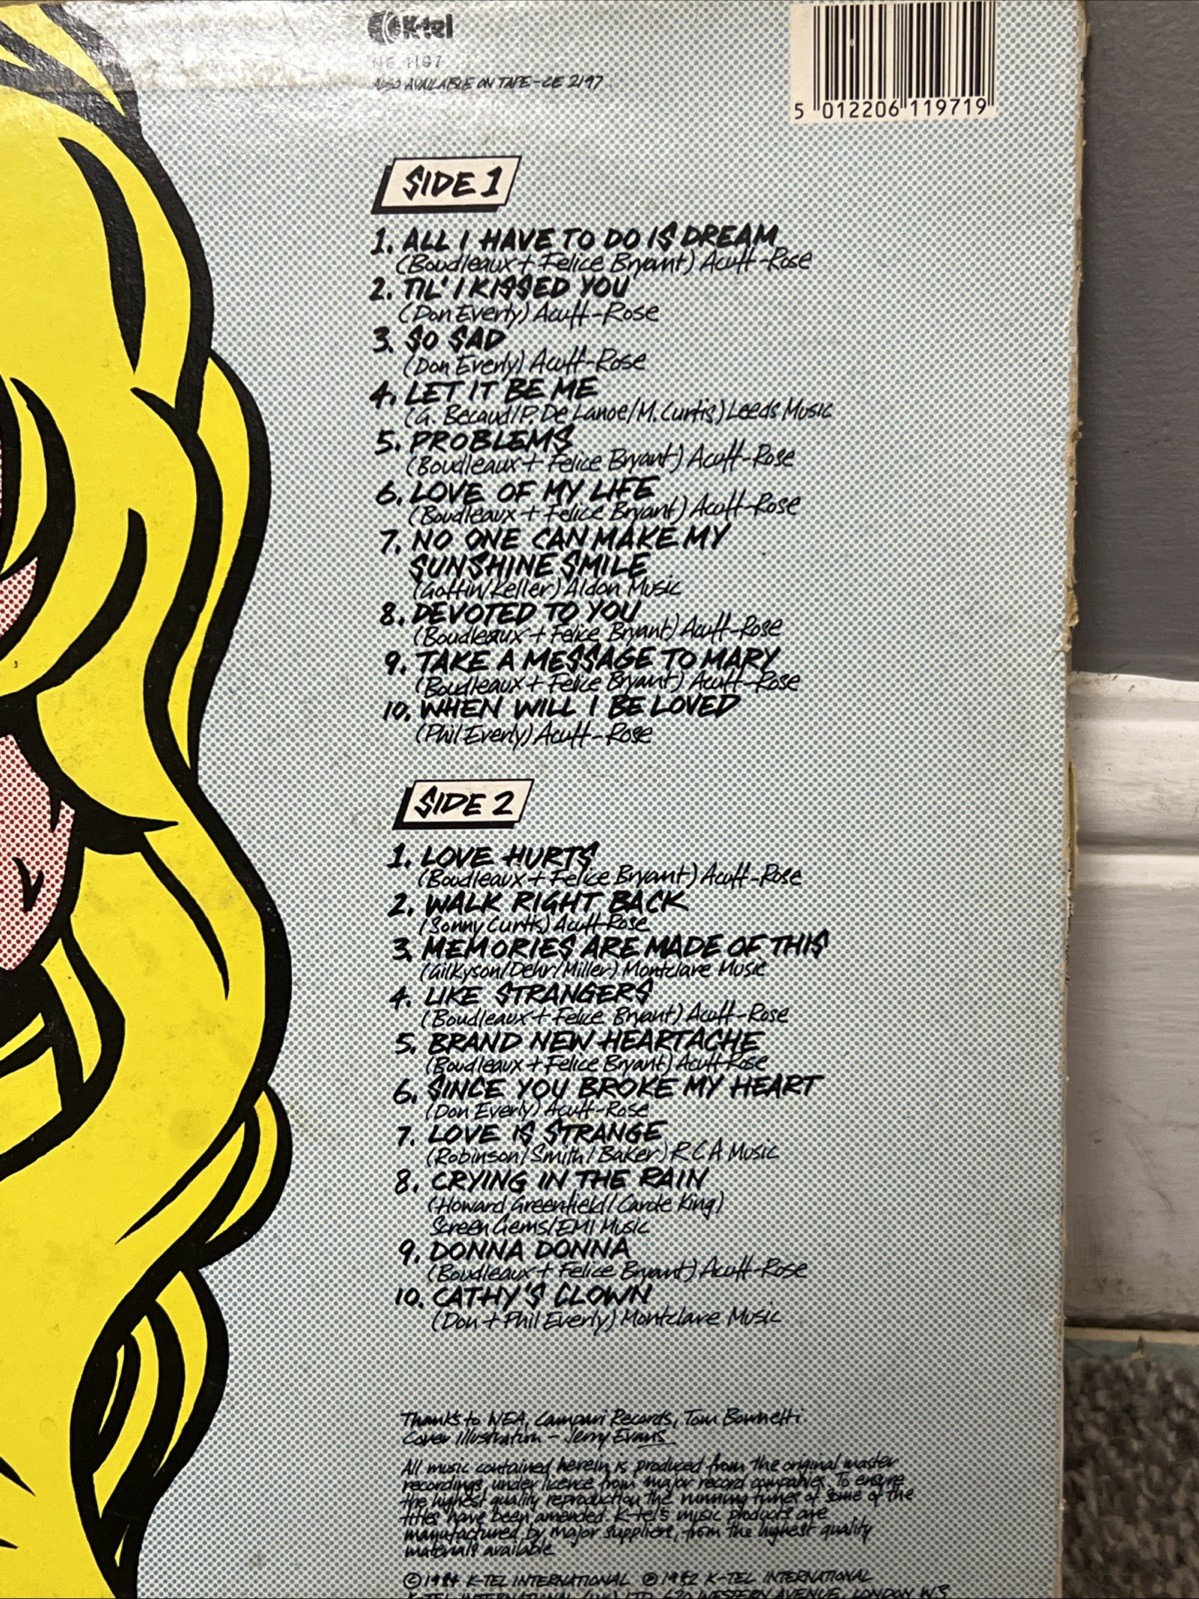 K-tel
NE 1197
ALSO AVAILABLE ON TAPE - CE 2197
5 012206 119719
SIDE 1
1. ALL I HAVE TO DO IS DREAM
(Boudleaux + Felice Bryant) Acuff-Rose
2. TIL' I KISSED YOU
(Don Everly) Acuff-Rose
3. SO SAD
(Don Everly) Acuff-Rose
4. LET IT BE ME
(G. Becaud/P. De Lanoe/M. Curtis) Leeds Music
5. PROBLEMS
(Boudleaux + Felice Bryant) Acuff-Rose
6. LOVE OF MY LIFE
(Boudleaux + Felice Bryant) Acuff-Rose
7. NO ONE CAN MAKE MY
SUNSHINE SMILE
(Goffin/Keller) Aldon Music
8. DEVOTED TO YOU
(Boudleaux + Felice Bryant) Acuff-Rose
9. TAKE A MESSAGE TO MARY
(Boudleaux + Felice Bryant) Acuff-Rose
10. WHEN WILL I BE LOVED
(Phil Everly) Acuff-Rose
SIDE 2
1. LOVE HURTS
(Boudleaux + Felice Bryant) Acuff-Rose
2. WALK RIGHT BACK
(Sonny Curtis) Acuff-Rose
3. MEMORIES ARE MADE OF THIS
(Gilkyson/Dehr/Miller) Montclare Music
4. LIKE STRANGERS
(Boudleaux + Felice Bryant) Acuff-Rose
5. BRAND NEW HEARTACHE
(Boudleaux + Felice Bryant) Acuff-Rose
6. SINCE YOU BROKE MY HEART
(Don Everly) Acuff-Rose
7. LOVE IS STRANGE
(Robinson/Smith/Baker) R.C.A Music
8. CRYING IN THE RAIN
(Howard Greenfield/Carole King)
Screen Gems/EMI Music
9. DONNA DONNA
(Boudleaux + Felice Bryant) Acuff-Rose
10. CATHY'S CLOWN
(Don + Phil Everly) Montclare Music
Thanks to WEA, Campari Records, Tom Bonnetti.
Cover Illustration - Jerry Evans
All music contained herein is produced from the original master
recordings, under licence from major record companies. To ensure
the highest quality reproduction the running times of some of the
titles have been amended. K-tel's music products are
manufactured by major suppliers, from the highest quality
materials available
© 1984 K-TEL INTERNATIONAL ℗ 1982 K-TEL INTERNATIONAL
K-TEL INTERNATIONAL (UK) LTD. 620 WESTERN AVENUE, LONDON W3